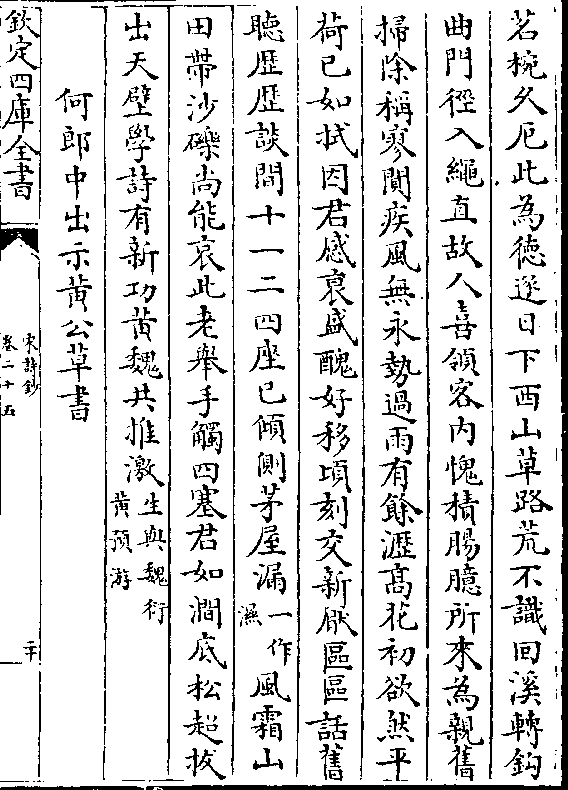 茗椀久厄此為徳逐日下西山草路荒不識回溪轉鈎
曲門徑入繩直故人喜領客内愧積腸臆所來為親舊
掃除稱寥閴疾風無永勢過雨有餘瀝髙花初欲然平
荷已如拭因君感衰盛醜好移頃刻交新厭區區話舊
聽歴歴談間十一二四座已傾側茅屋漏一作濕風霜山
田帶沙礫尚能哀此老舉手觸四塞君如澗底松超拔
出天壁學詩有新功黄魏共推激生與魏衍黄預游
何郎中出示黄公草書
欽定四庫全書
宋詩鈔
卷二十五
二十